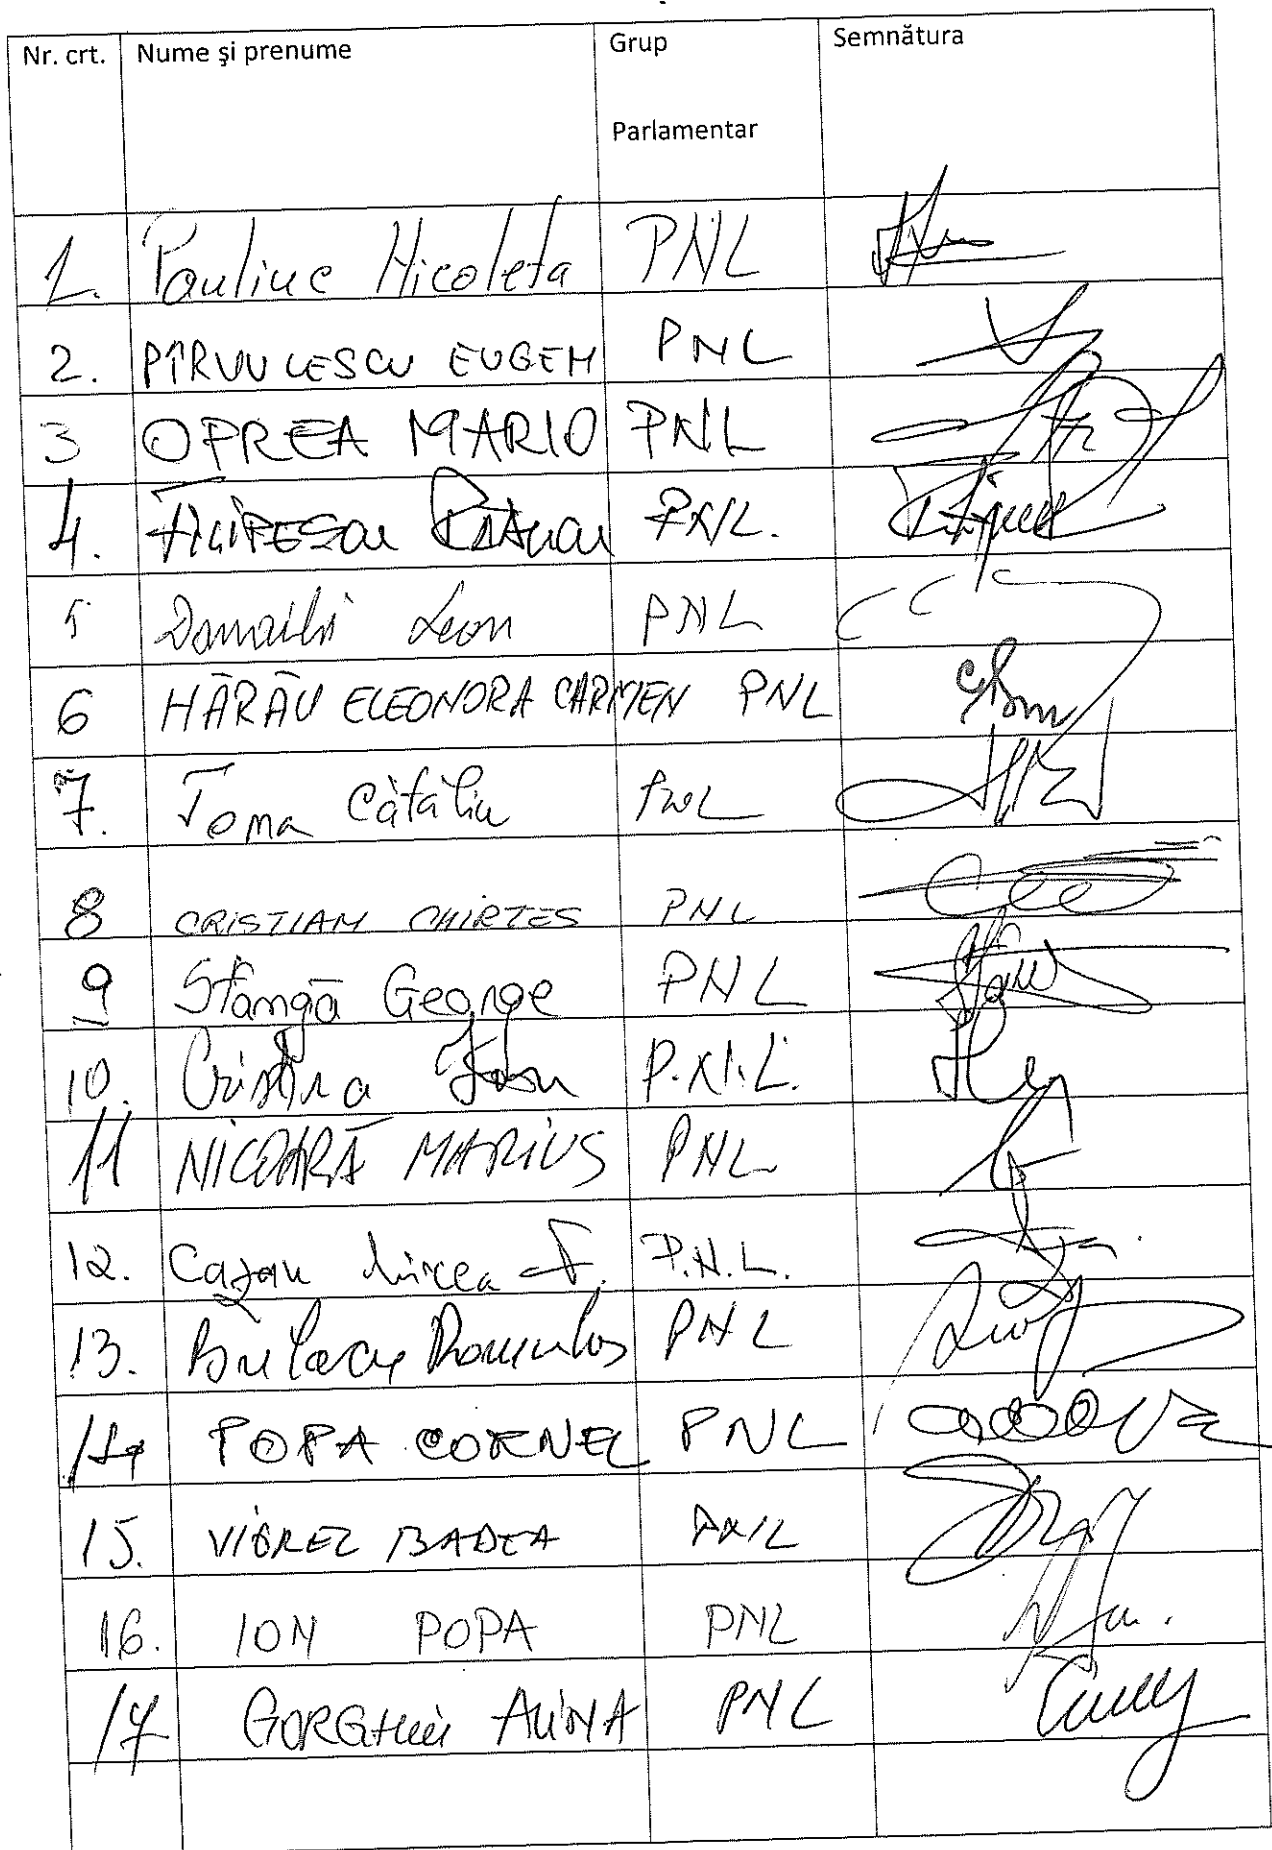 Nr. crt. Nume și prenume Grup Parlamentar Semnătura
1. Pauliuc Nicoleta PNL
2. PÎRVULESCU EUGEN PNL
3 OPREA MARIO PNL
4. FILIPESCU RĂZVAN PNL.
5 Dănăilă Leon PNL
6 HĂRĂU ELEONORA CARMEN PNL
7. Toma Cătălin PNL
8 CRISTIAN CHIRTES PNL
9 Stângă George PNL
10. Cristina P.N.L.
11 NICOARĂ MARIUS PNL
12. Cazan Mircea P.N.L.
13. Bulacu Romulus PNL
14 POPA CORNEL PNL
15. VIOREL BADEA PNL
16. ION POPA PNL
17 GORGHIU ALINA PNL